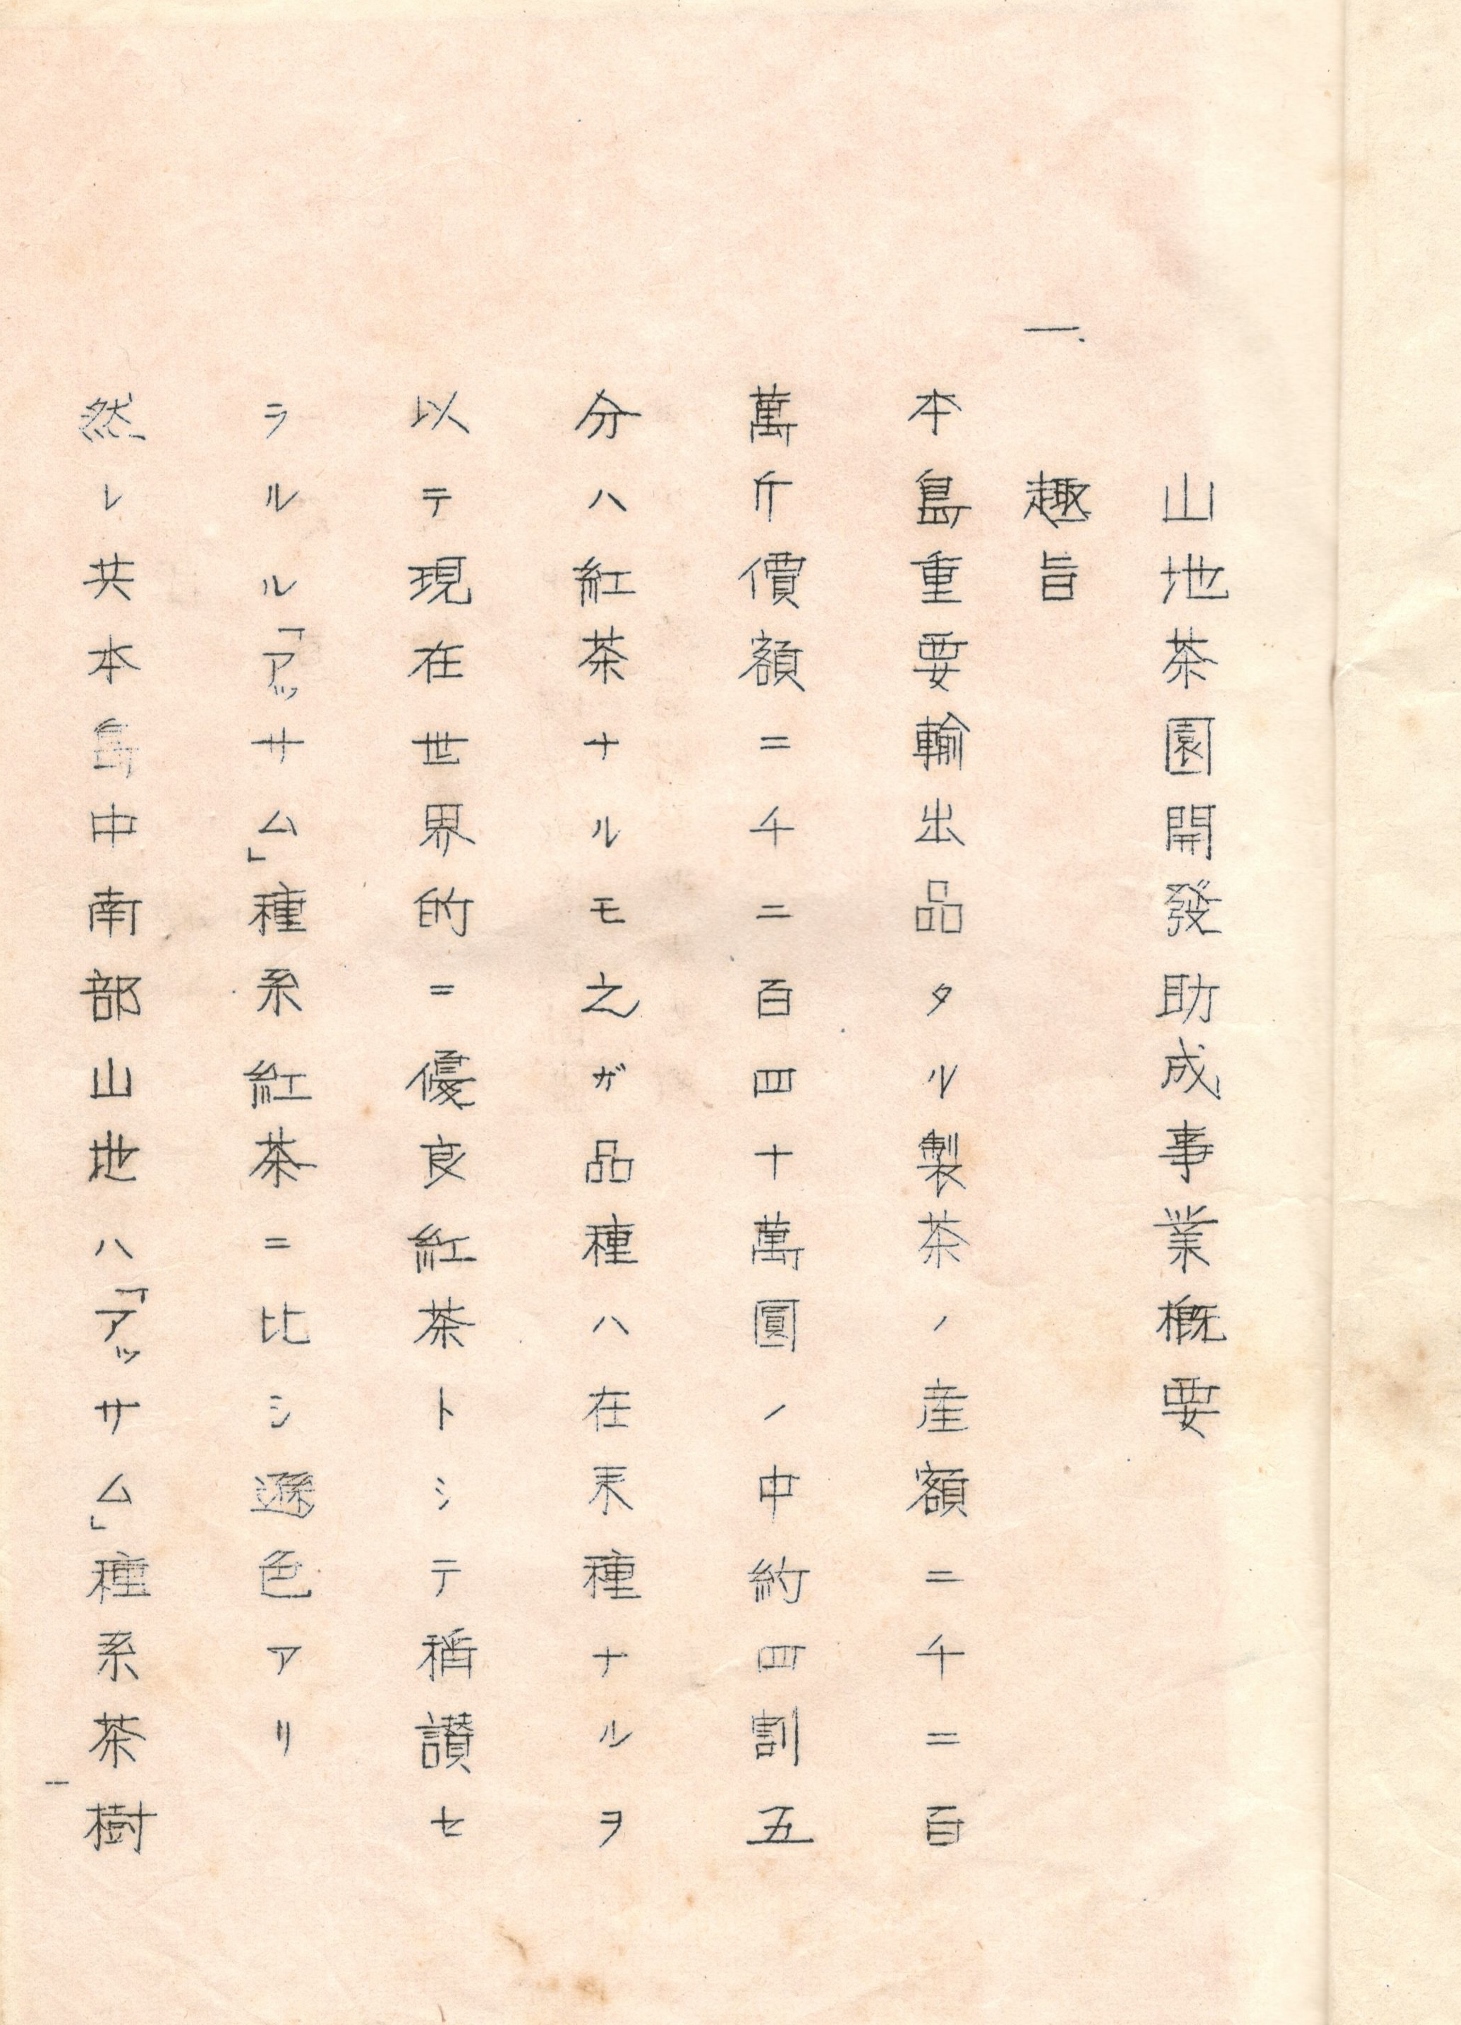 山地茶園開發助成事業概要
一、趣旨
本島重要輸出品タル製茶ノ産額ニ千二百
萬斤價額ニ千ニ百四十萬圓ノ中約四割五
分ハ紅茶ナルモ之ガ品種ハ在来種ナルヲ
以テ現在世界的ニ優良紅茶トシテ稱讃セ
ラルル「アッサム」種系紅茶ニ比シ遜色アリ
然レ共本島中南部山地ハ「アッサム」種系茶樹
一